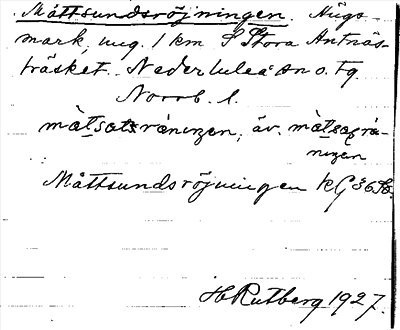 Måttsundsröjningen. Högs-
mark, ung. 1 km S Stora Antnäs-
träsket. Nederluleå sn o. tg.
Norrb. l.
màtsatsráningen, äv. màtsasrá-
ningen
Måttsundsröjningen kG 36 Sö.
H Rutberg 1927.